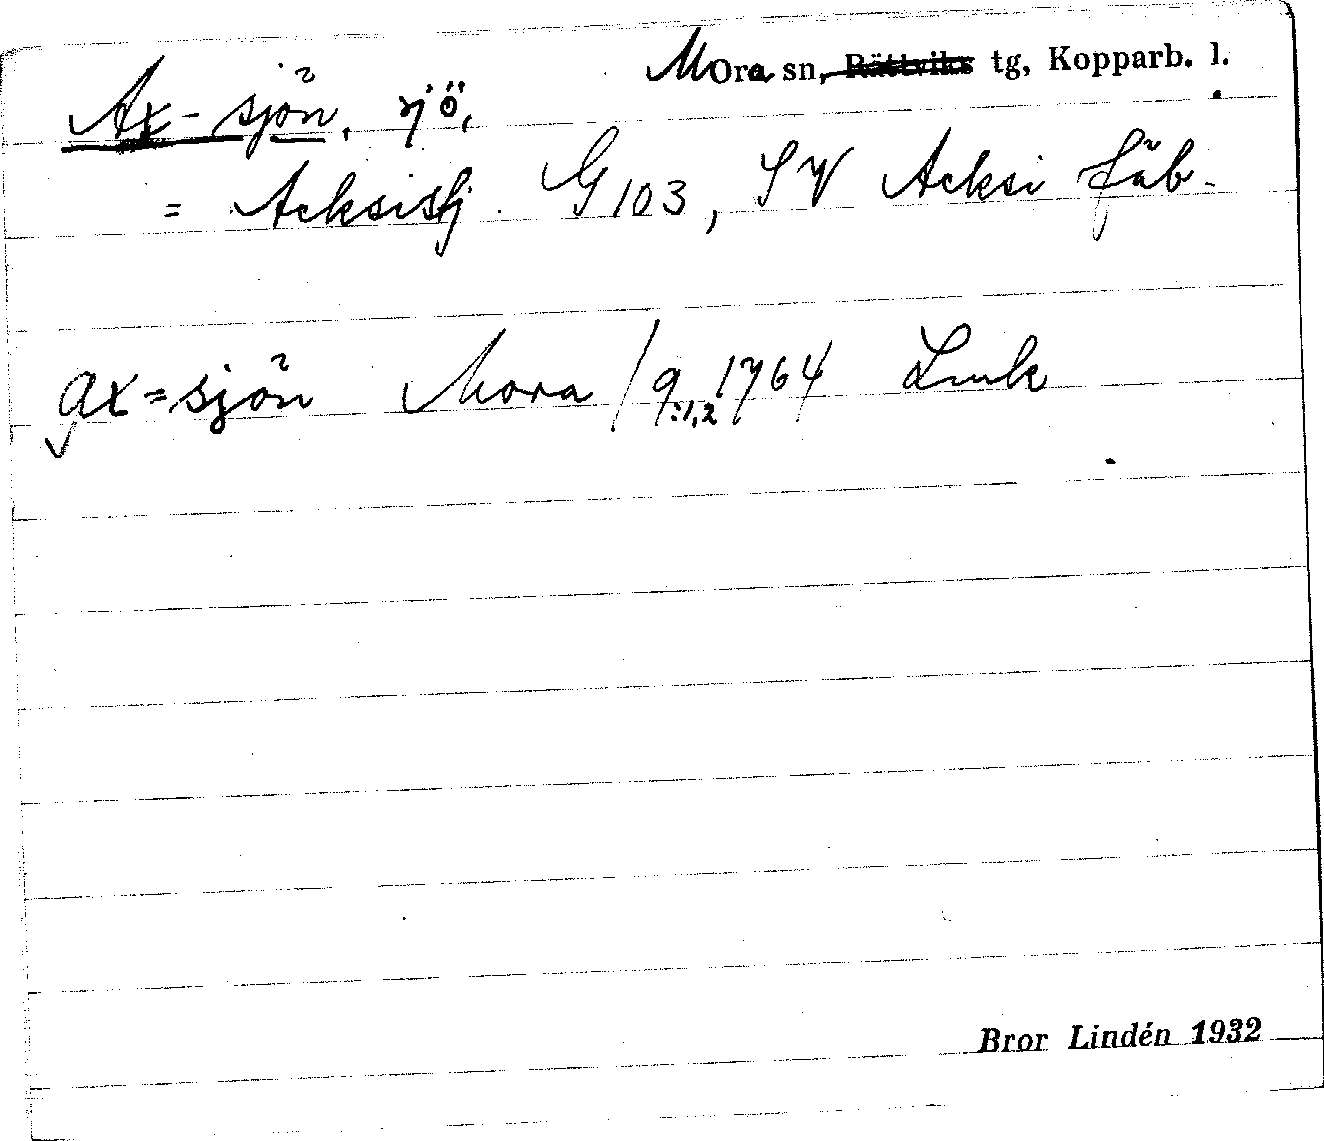 Mora sn, Rättviks tg, Kopparb. l.
Ax-sjön, sjö,
= Acksisj. G 103, SV Acksi fäb.
ax=sjön Mora / 9:1,2 1764 Lmk
Bror Lindén 1932